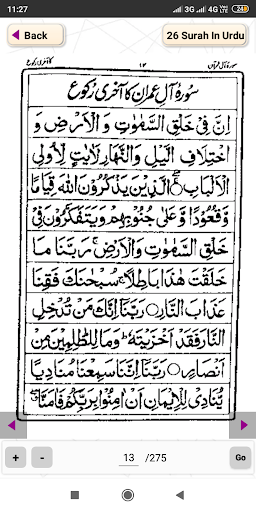 11:27
4G 4G 24
Back
26 Surah In Urdu
سورۃ آل عمران
۱۳
کا آخری رکوع
سُورۂ آلِ عِمرٰن کا آخری رکوع
اِنَّ فِیْ خَلْقِ السَّمٰوٰتِ وَ الْاَرْضِ وَ
اخْتِلَافِ الَّیْلِ وَالنَّهَارِ لَاٰیٰتٍ لِّاُولِی
الْاَلْبَابِ ۝ الَّذِیْنَ یَذْكُرُوْنَ اللّٰهَ قِیَامًا
وَّقُعُوْدًا وَّعَلٰی جُنُوْبِهِمْ وَیَتَفَكَّرُوْنَ فِیْ
خَلْقِ السَّمٰوٰتِ وَالْاَرْضِ ۚ رَبَّنَا مَا
خَلَقْتَ هٰذَا بَاطِلًا ۚ سُبْحٰنَكَ فَقِنَا
عَذَابَ النَّارِ ۝ رَبَّنَا اِنَّكَ مَنْ تُدْخِلِ
النَّارَ فَقَدْ اَخْزَیْتَهٗ ؕ وَمَا لِلظّٰلِمِیْنَ مِنْ
اَنْصَارٍ ۝ رَبَّنَا اِنَّنَا سَمِعْنَا مُنَادِیًا
یُّنَادِیْ لِلْاِیْمَانِ اَنْ اٰمِنُوْا بِرَبِّكُمْ فَاٰمَنَّا ۖ
+ - 13 /275 Go